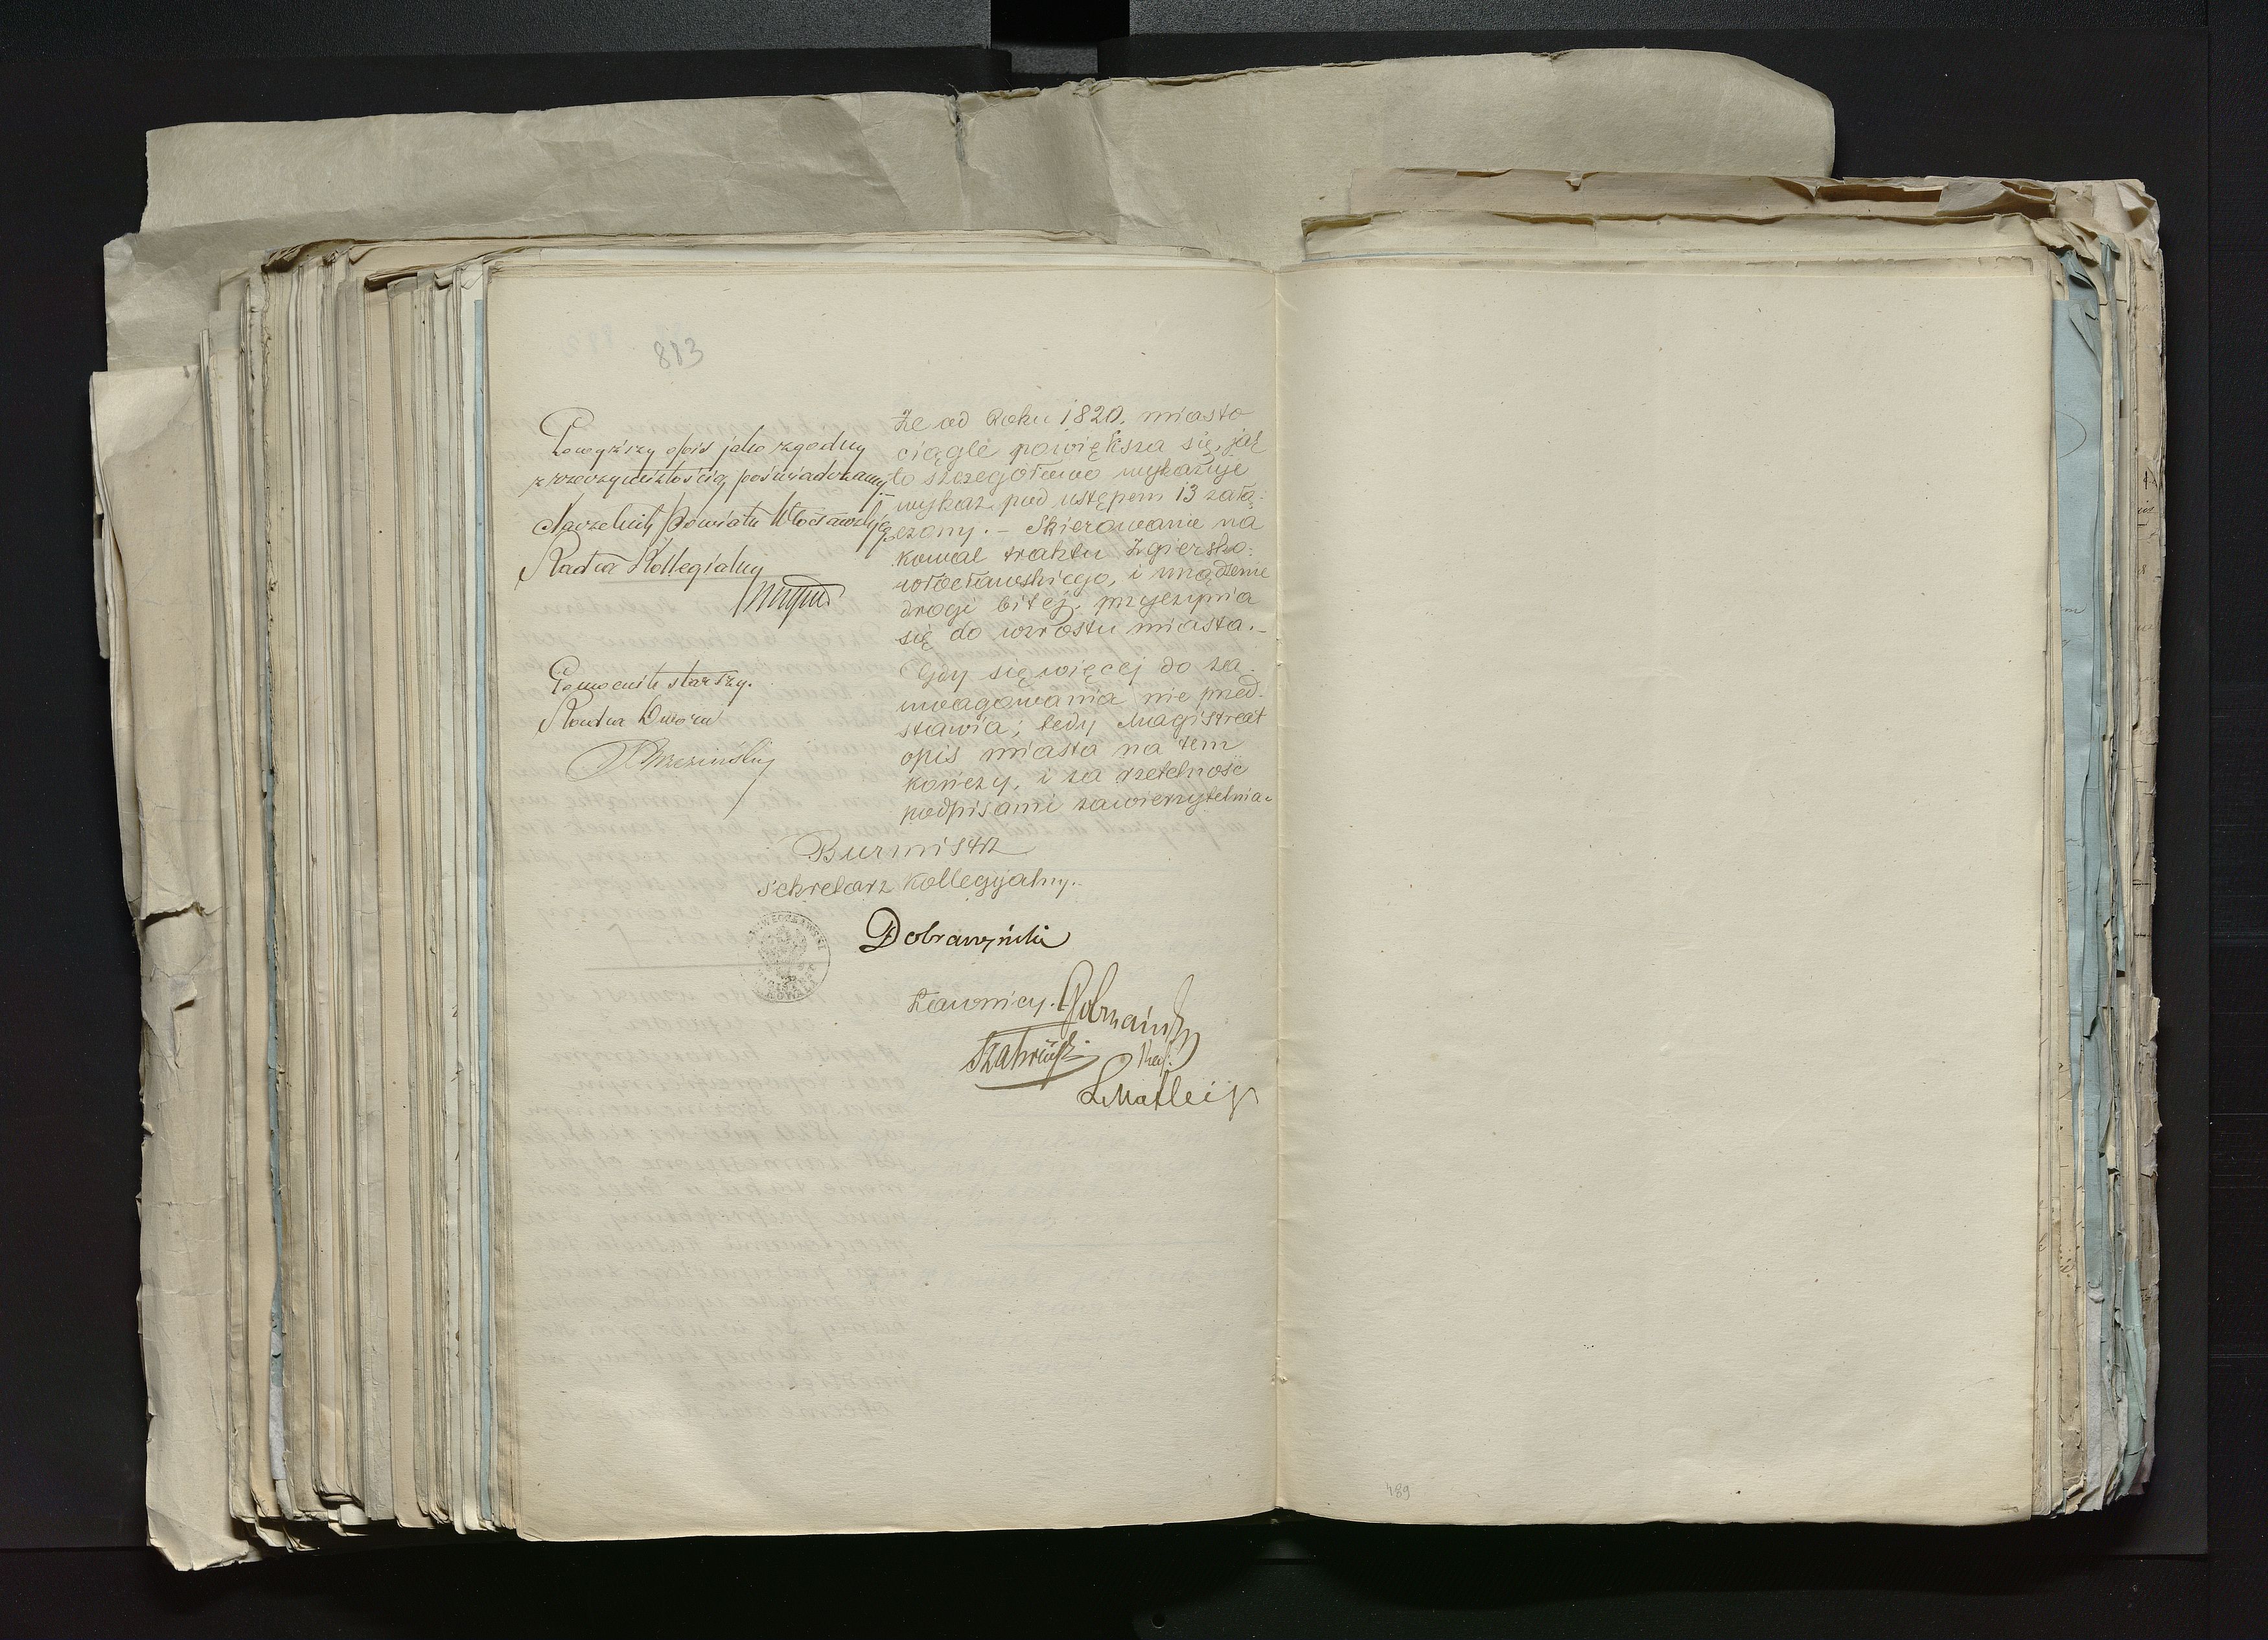 813
Powyższy opis jako zgodny
z rzeczywistością poświadczamy
Naczelnik Powiatu Włocławskiego
Radca Kollegialny
Pomocnik starszy.
Radca Dworu
że od Roku 1820. miasto
ciągle powiększa się, jak
to szczegółowo wykazuje
wykaz pod ustępem 13 załą-
czony. – Skierowanie na
Kowal traktu Zgiersko-
włocławskiego, i urządzenie
drogi bitej, przyczynia
się do wzrostu miasta. –
Gdy się więcej do za-
uwagowania nie przed-
stawia; tedy Magistrat
opis miasta na tem
kończy, i za rzetelność
podpisami zawierzytelnia.
Burmistrz
Sekretarz Kollegijalny.
Dobrzwyński
Ławnicy.
489